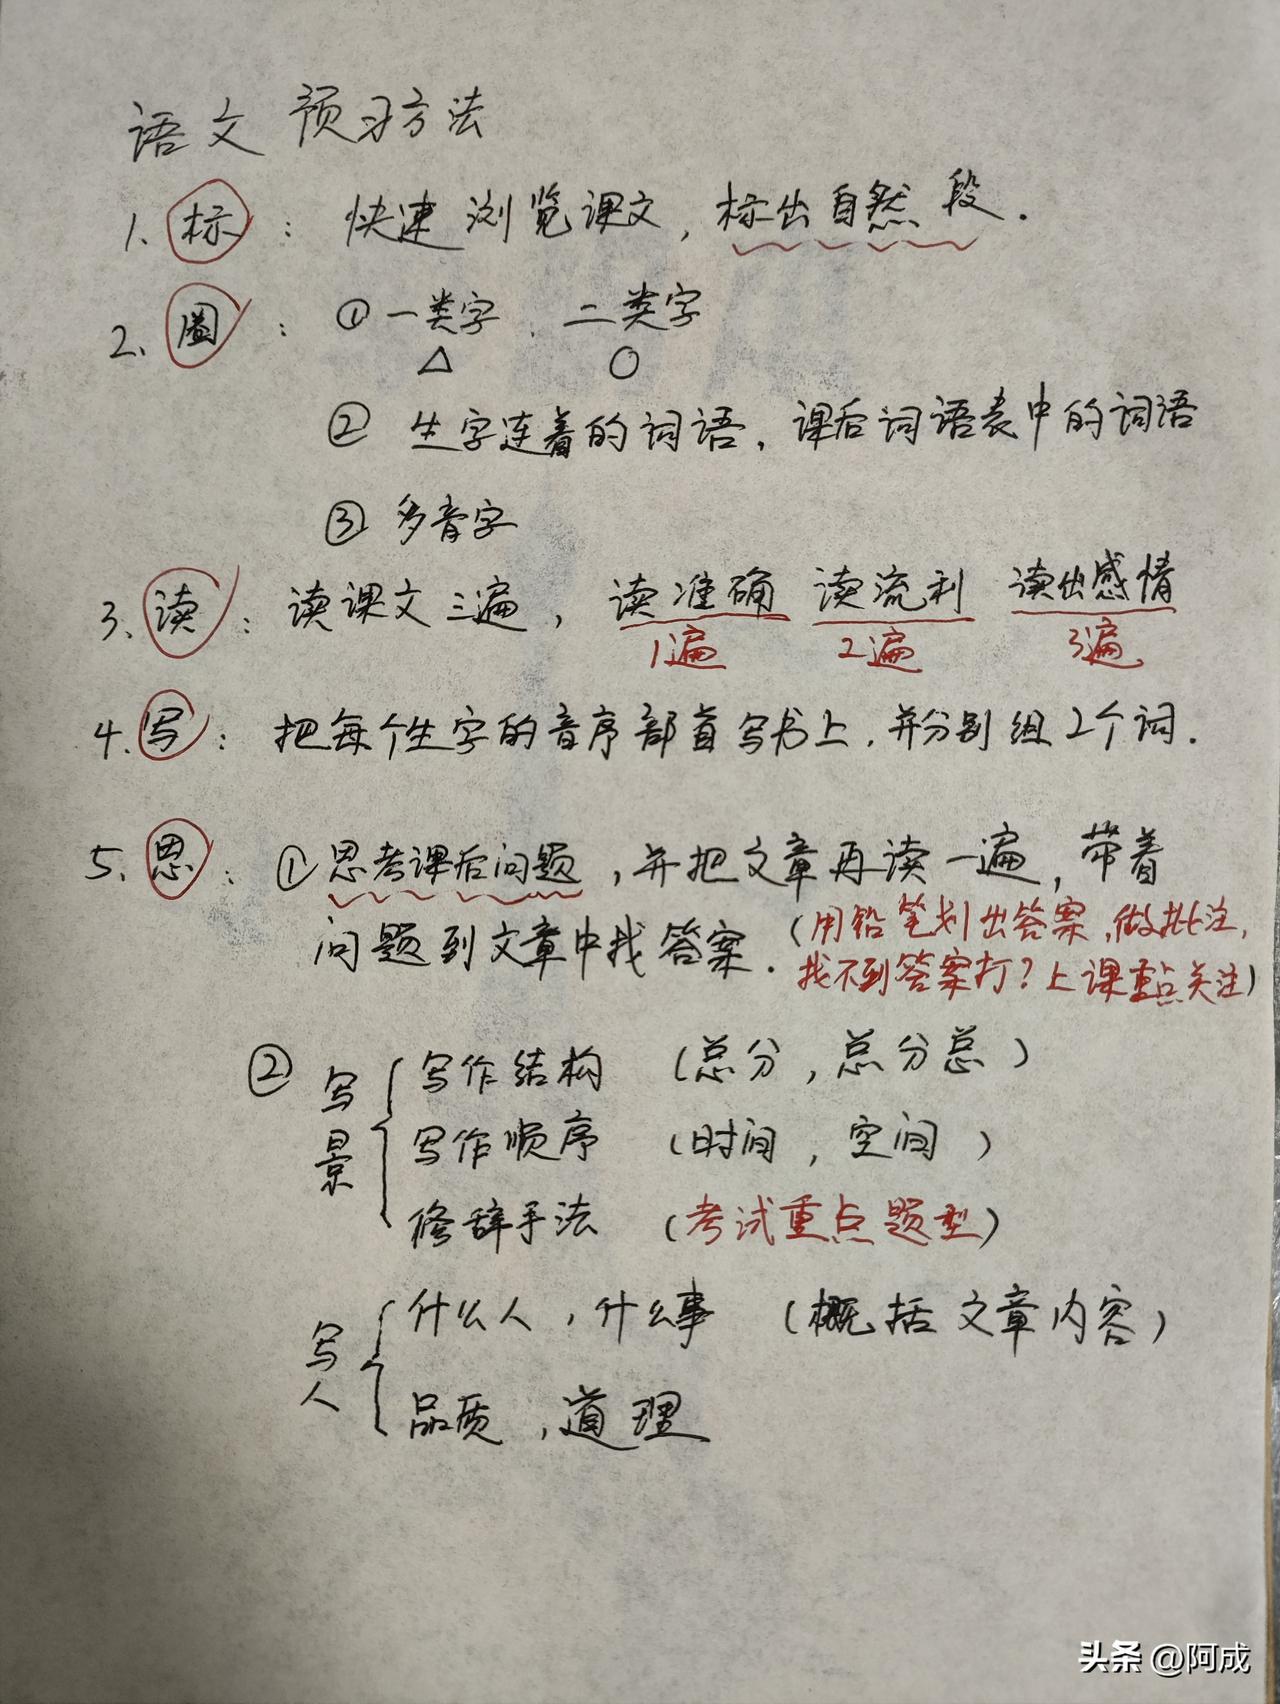 语文 预习方法
1、标：快速浏览课文，标出自然段.
2、圈：①一类字 二类字
△ ○
②生字连着的词语，课后词语表中的词语
③多音字
3、读：读课文三遍，读准确 读流利 读出感情
1遍 2遍 3遍
4.写：把每个生字的音序部首写书上，并分别组2个词.
5、思：①思考课后问题，并把文章再读一遍，带着
问题到文章中找答案.（用铅笔划出答案，做批注，
找不到答案打？上课重点关注）
②写景 写作结构（总分，总分总）
写作顺序（时间，空间）
修辞手法（考试重点题型）
写人 什么人，什么事（概括文章内容）
品质，道理
头条 @阿成